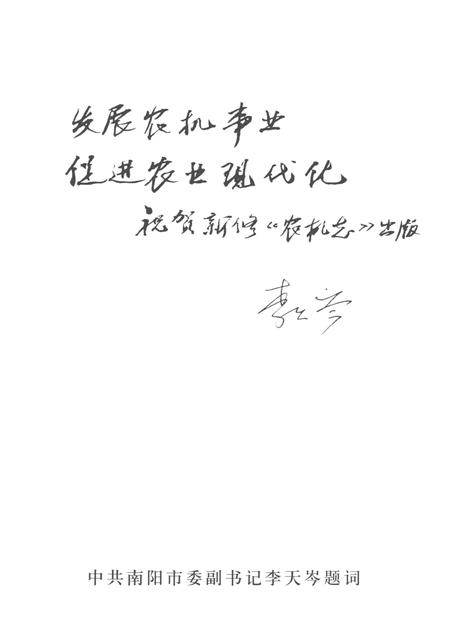 发展农机事业
促进农业现代化
祝贺新修《农机志》出版
李天岑
中共南阳市委副书记李天岑题词